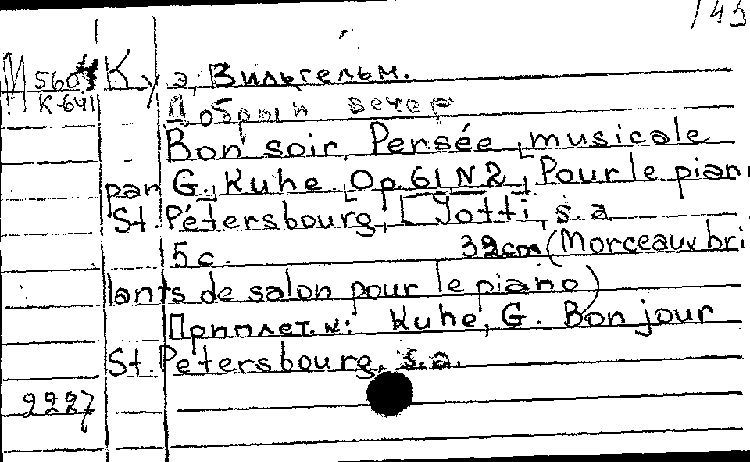 145
М 5604 Куэ, Вильгельм.
К-641 Добрый вечер
Bon soir, Persée, musicale
par G. Kuhe. [Op. 61 N 2], Pour le piano
St. Pétersbourg, [Jotti, s.a.
5 c. 32cm (Morceaux bri
lants de salon pour le piano)
Приплет. к: Kuhe, G. Bonjour
St. Petersbourg, s.a.
2227